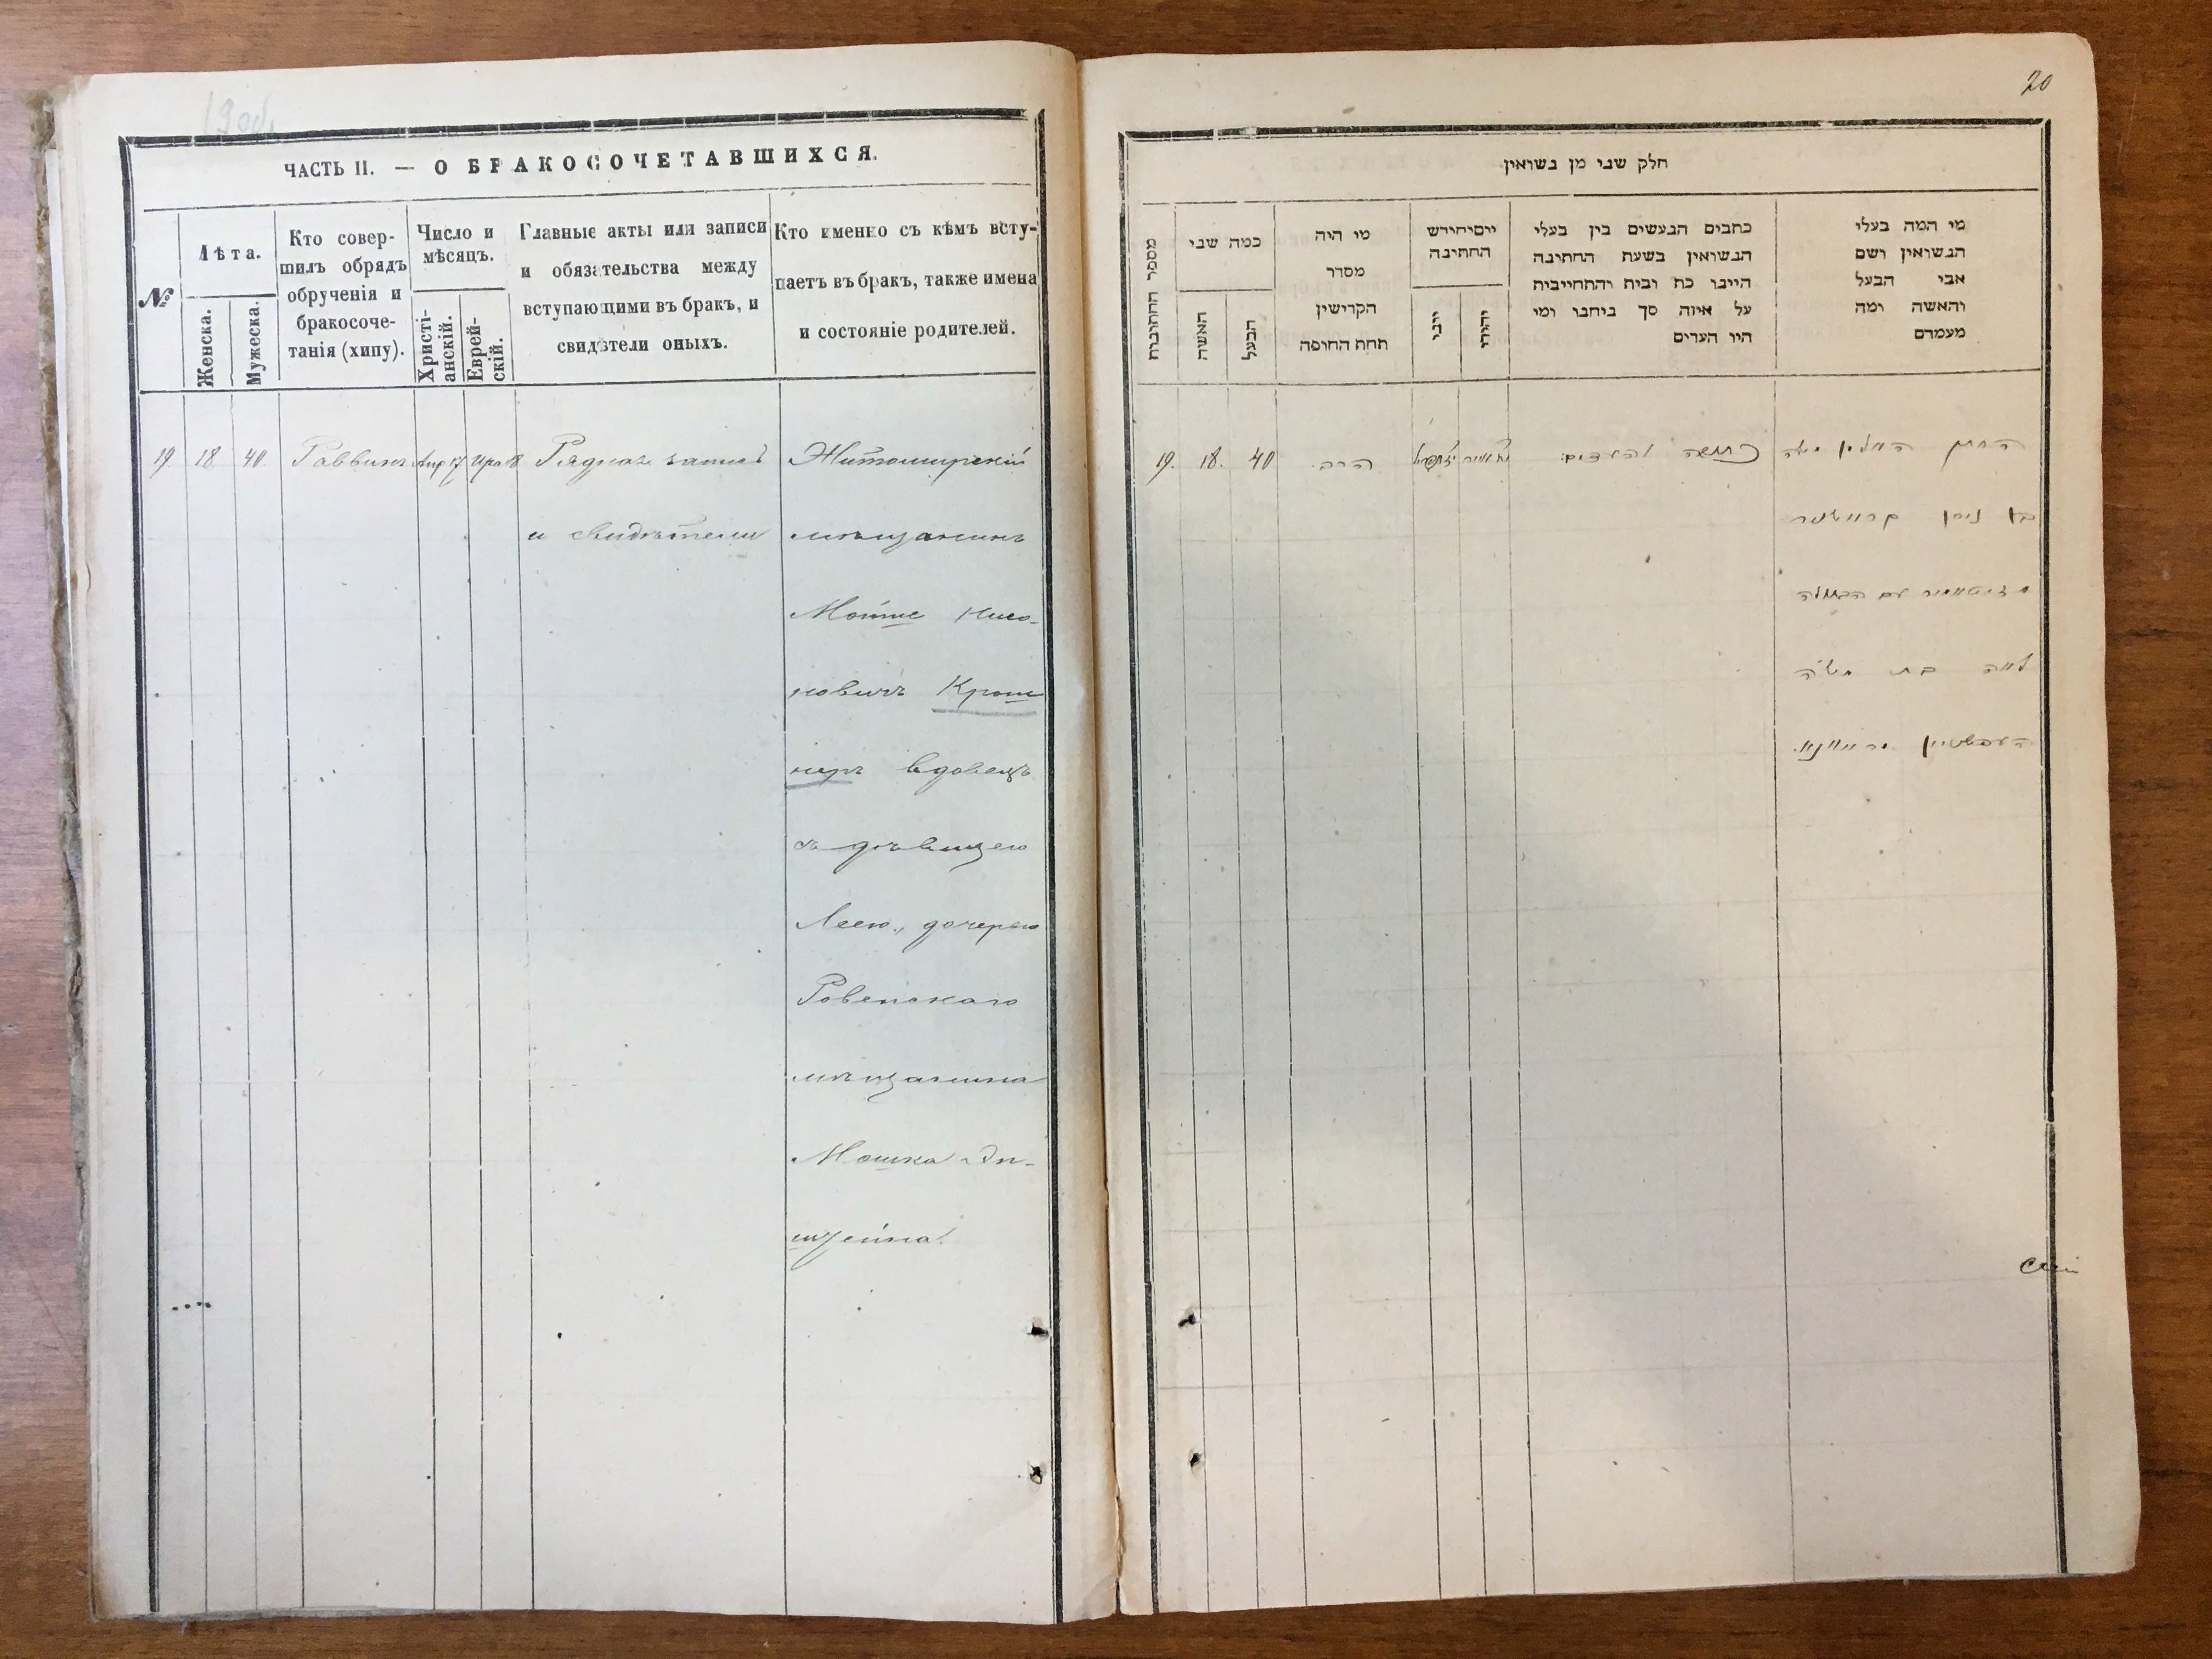 ЧАСТЬ II. — О БРАКОСОЧЕТАВШИХСЯ.
№
Лѣта.
Женска.
Мужеска.
Кто совер-
шилъ обрядъ
обрученія и
бракосоче-
танія (хипу).
Число и
мѣсяцъ.
Христі-
анскій.
Еврей-
скій.
Главные акты или записи
и обязательства между
вступающими въ бракъ, и
свидѣтели оныхъ.
Кто именно съ кѣмъ всту-
паетъ въ бракъ, также имена
и состояніе родителей.
19. 18. 40. Раввинъ Апр 17 Ира 8 Рядная запись Житомирскій
и свидѣтели мѣщанинъ
Мотте Нисо-
новичъ Крош
неръ вдовецъ
съ дѣвицею
Леею, дочерью
Ровенскаго
мѣщанина
Мошка Эп-
штейна.
20
חלק שני מן נשואין
מספר החתונות
כמה שני
האשה
הבעל
מי היה
מסדר
הקדישין
תחת החופה
יוםיחירש
החתונה
ייני
יהודי
כתבים הנעשים בין בעלי
הנשואין בשעת החתונה
היינו כח ובית והתחייבית
על איזה סך ביחבו ומי
היו הערים
מי המה בעלי
הנשואין ושם
אבי הבעל
והאשה ומה
מעמדם
19. 18. 40 הרב כתובה והעדים החתן
בן ניסן קרושנער
מזיטאמיר עם הבתולה
לאה בת משה
עפשטיין